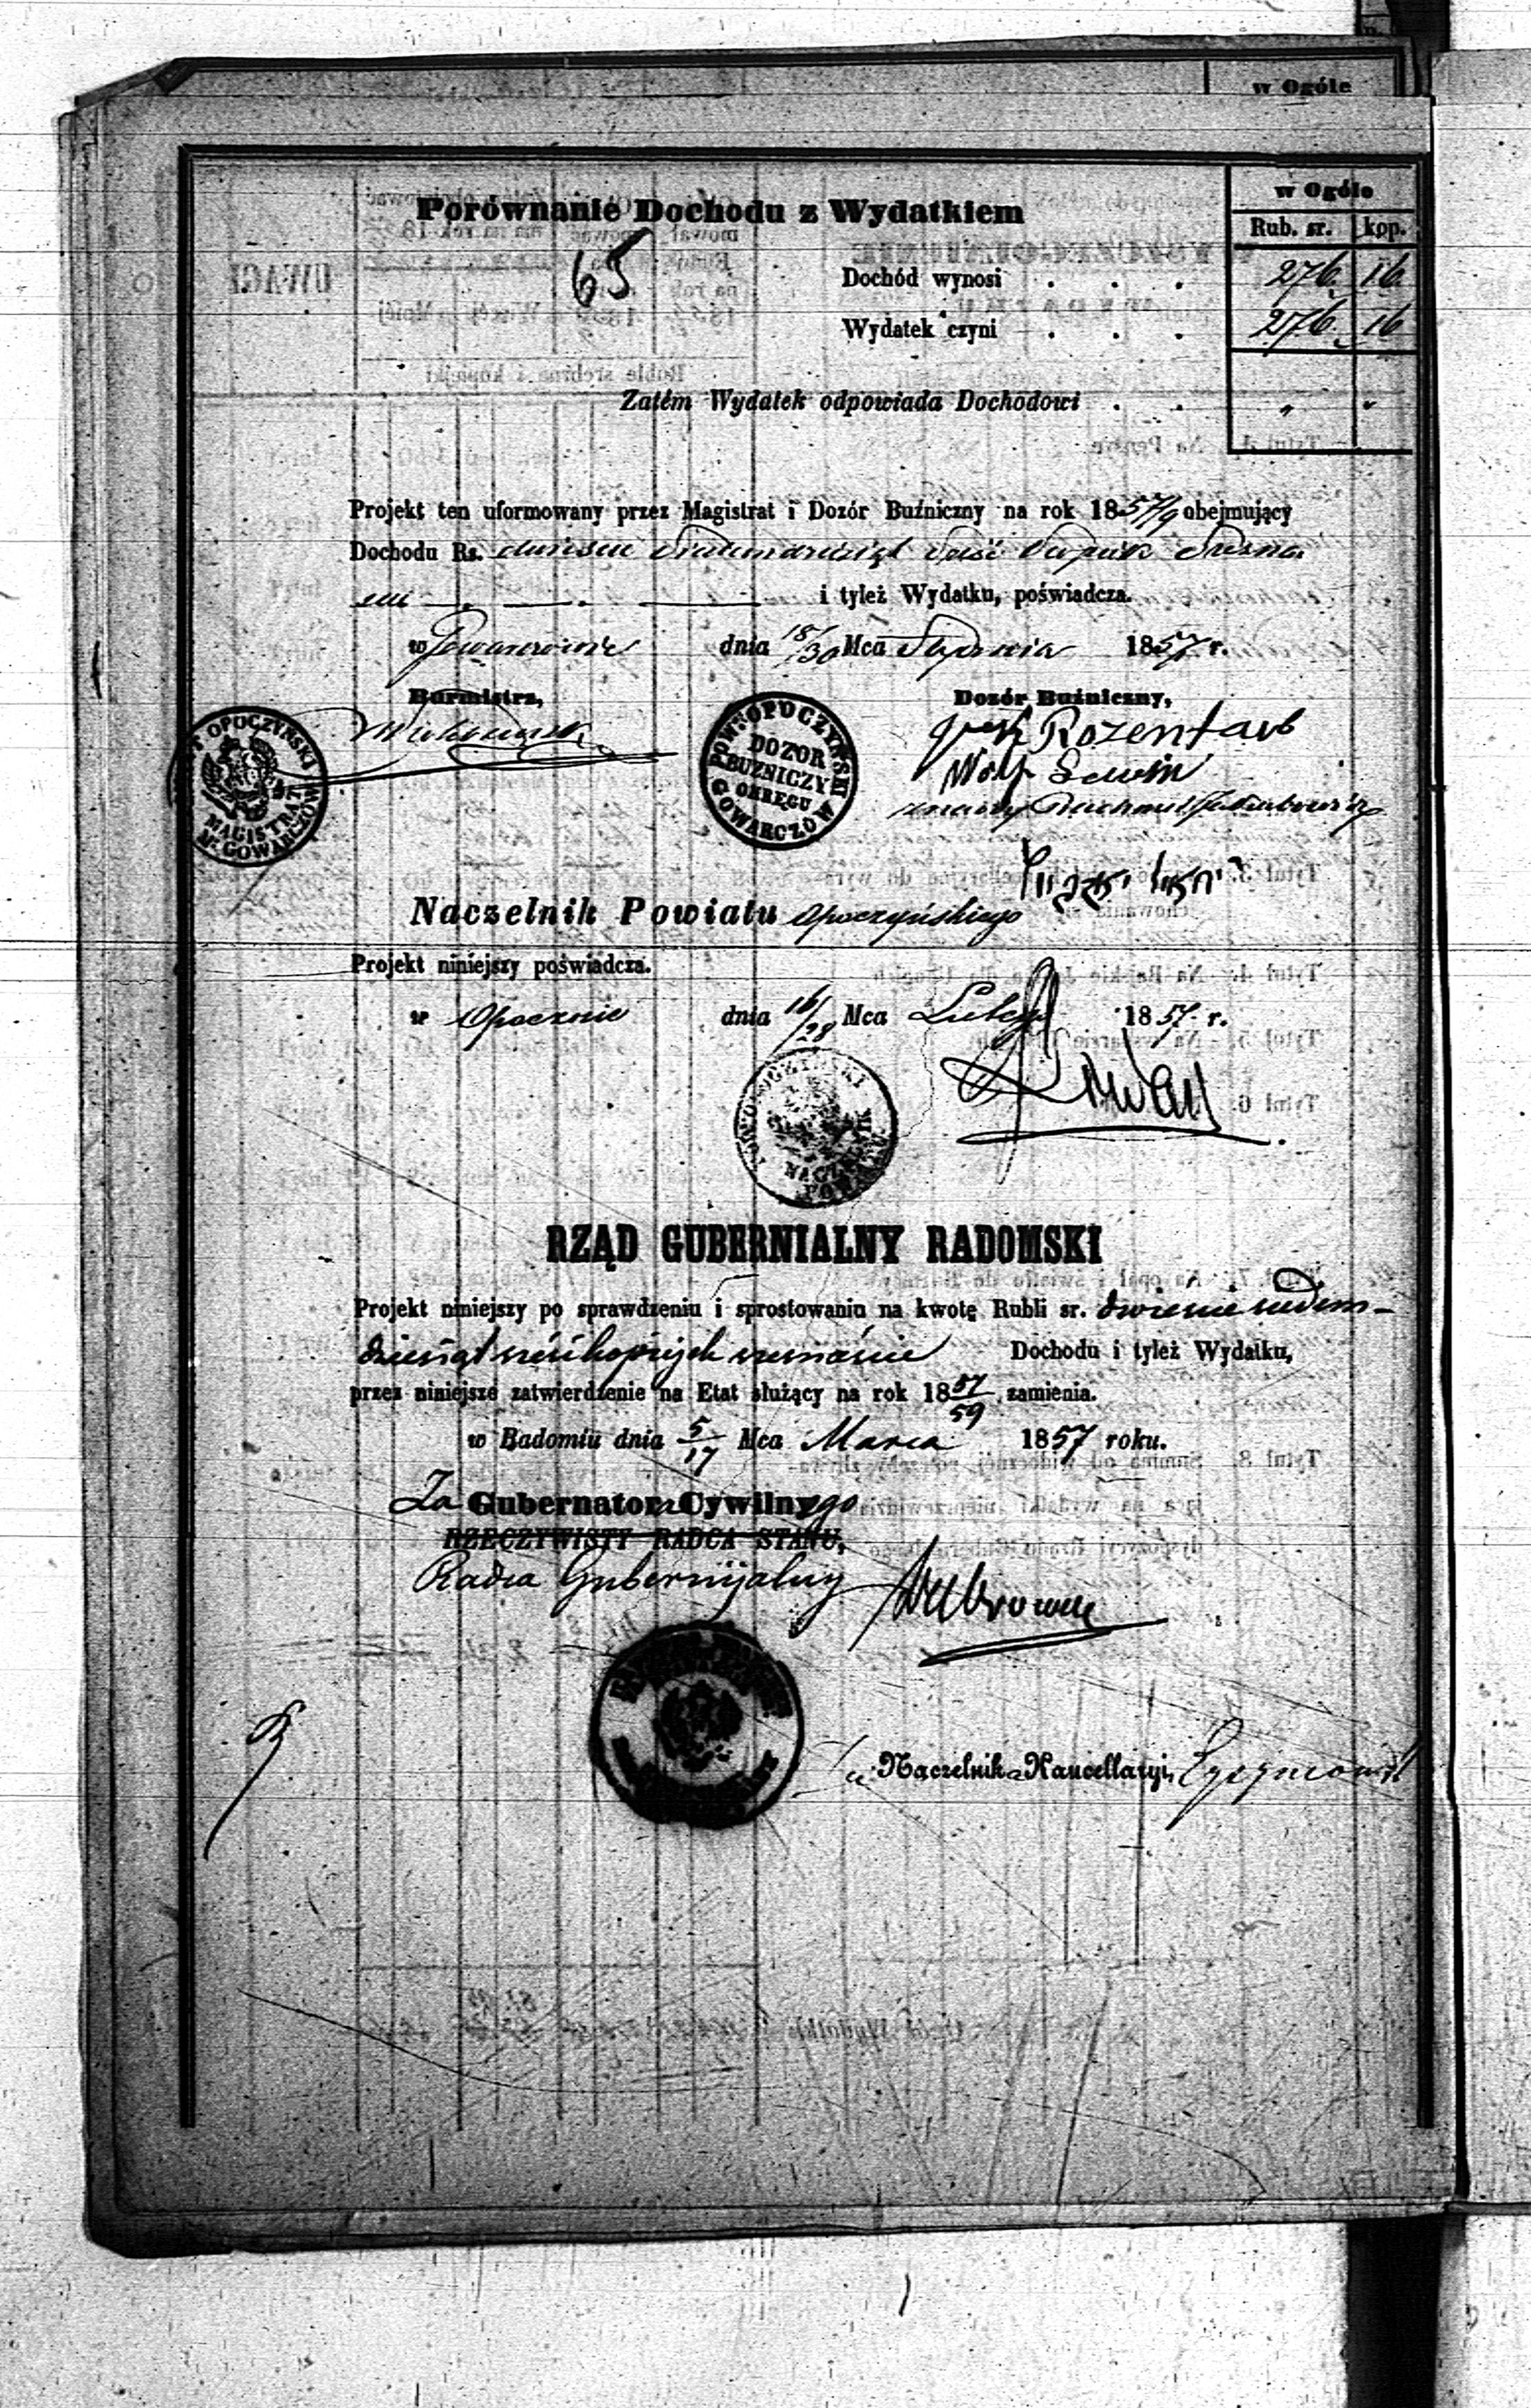 w Ogóle
Porównanie Dochodu z Wydatkiem
w Ogóle
Rub. sr. kop.
65
Dochód wynosi . . . 276. 16
Wydatek czyni . . . 276. 16
Zatém Wydatek odpowiada Dochodowi . . " "
Projekt ten uformowany przez Magistrat i Dozór Buźniczny na rok 1857/9 obejmujący
Dochodu Rs. dwieście siedmdziesiąt sześć kopiejek szesna
i tyleż Wydatku, poświadcza.
w Gowarczowie dnia 18/30 Mca Stycznia 1857 r.
Burmistrz,
Dozór Buźniczny,
POWT OPOCZYŃSKI
DOZOR
BUZNICZY
OKRĘGU
GOWARCZÓW
OPOCZYŃSKI
MAGISTRAT
M. GOWARCZÓW
Rozentarb
Wolf Lewin
Naczelnik Powiatu Opoczyńskiego
Projekt niniejszy poświadcza.
w Opocznie dnia 16/28 Mca Lutego 1857 r.
RZĄD GUBERNIALNY RADOMSKI
Projekt niniejszy po sprawdzeniu i sprostowaniu na kwotę Rubli sr. dwieście siedem-
dziesiąt sześć kopiejek szesnaście Dochodu i tyleż Wydatku,
przez niniejsze zatwierdzenie na Etat służący na rok 1857/59 zamienia.
w Radomiu dnia 5/17 Mca Marca 1857 roku.
Za Gubernatora Cywilnego
RZECZYWISTY RADCA STANU,
Radca Gubernijalny
Naczelnik Kancellaryi,